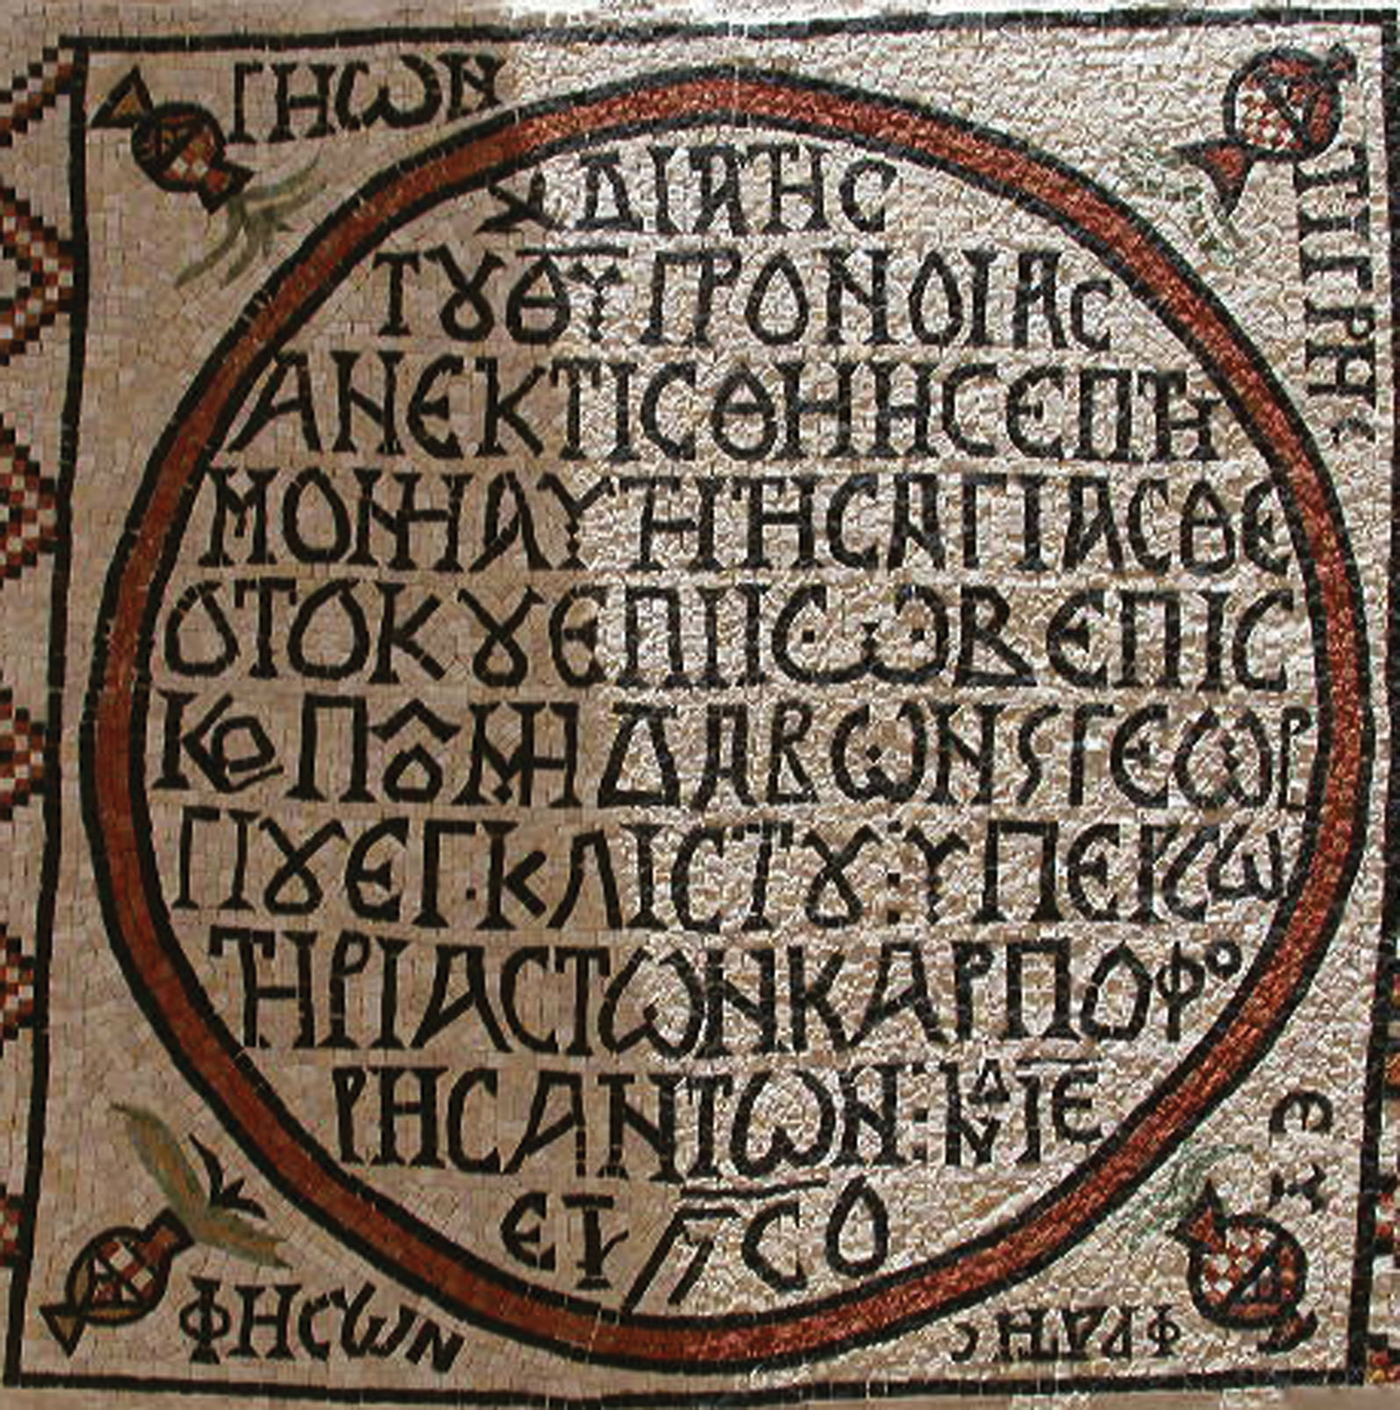 ΓΗΩΝ
ΤΙΓΡΗΣ
Χ ΔΙΑ ΤΗϹ
ΤȢ ΘΥ ΠΡΟΝΟΙΑϹ
ΑΝΕΚΤΙϹΘΗ Η ϹΕΠΤΗ
ΜΟΝΗ ΑΥΤΗ ΤΗϹ ΑΓΙΑϹ ΘΕ
ΟΤΟΚȢ ΕΠΙ ϹΩΒ ΕΠΙϹ
ΚΟ ΠȢ ΜΗΔΑΒΩΝ Ϛ ΓΕΩΡ
ΓΙȢ ΕΓ·ΚΛΙϹΤȢ : ΥΠΕΡ ϹΩ
ΤΗΡΙΑϹ ΤΩΝ ΚΑΡΠΟΦΟ
ΡΗϹΑΝΤΩΝ : ΙΝΔ ΙΕ
ΕΤ ϚϹΟ
ΦΗϹΩΝ
ΕΥ
ΦΡΑΤΗϹ